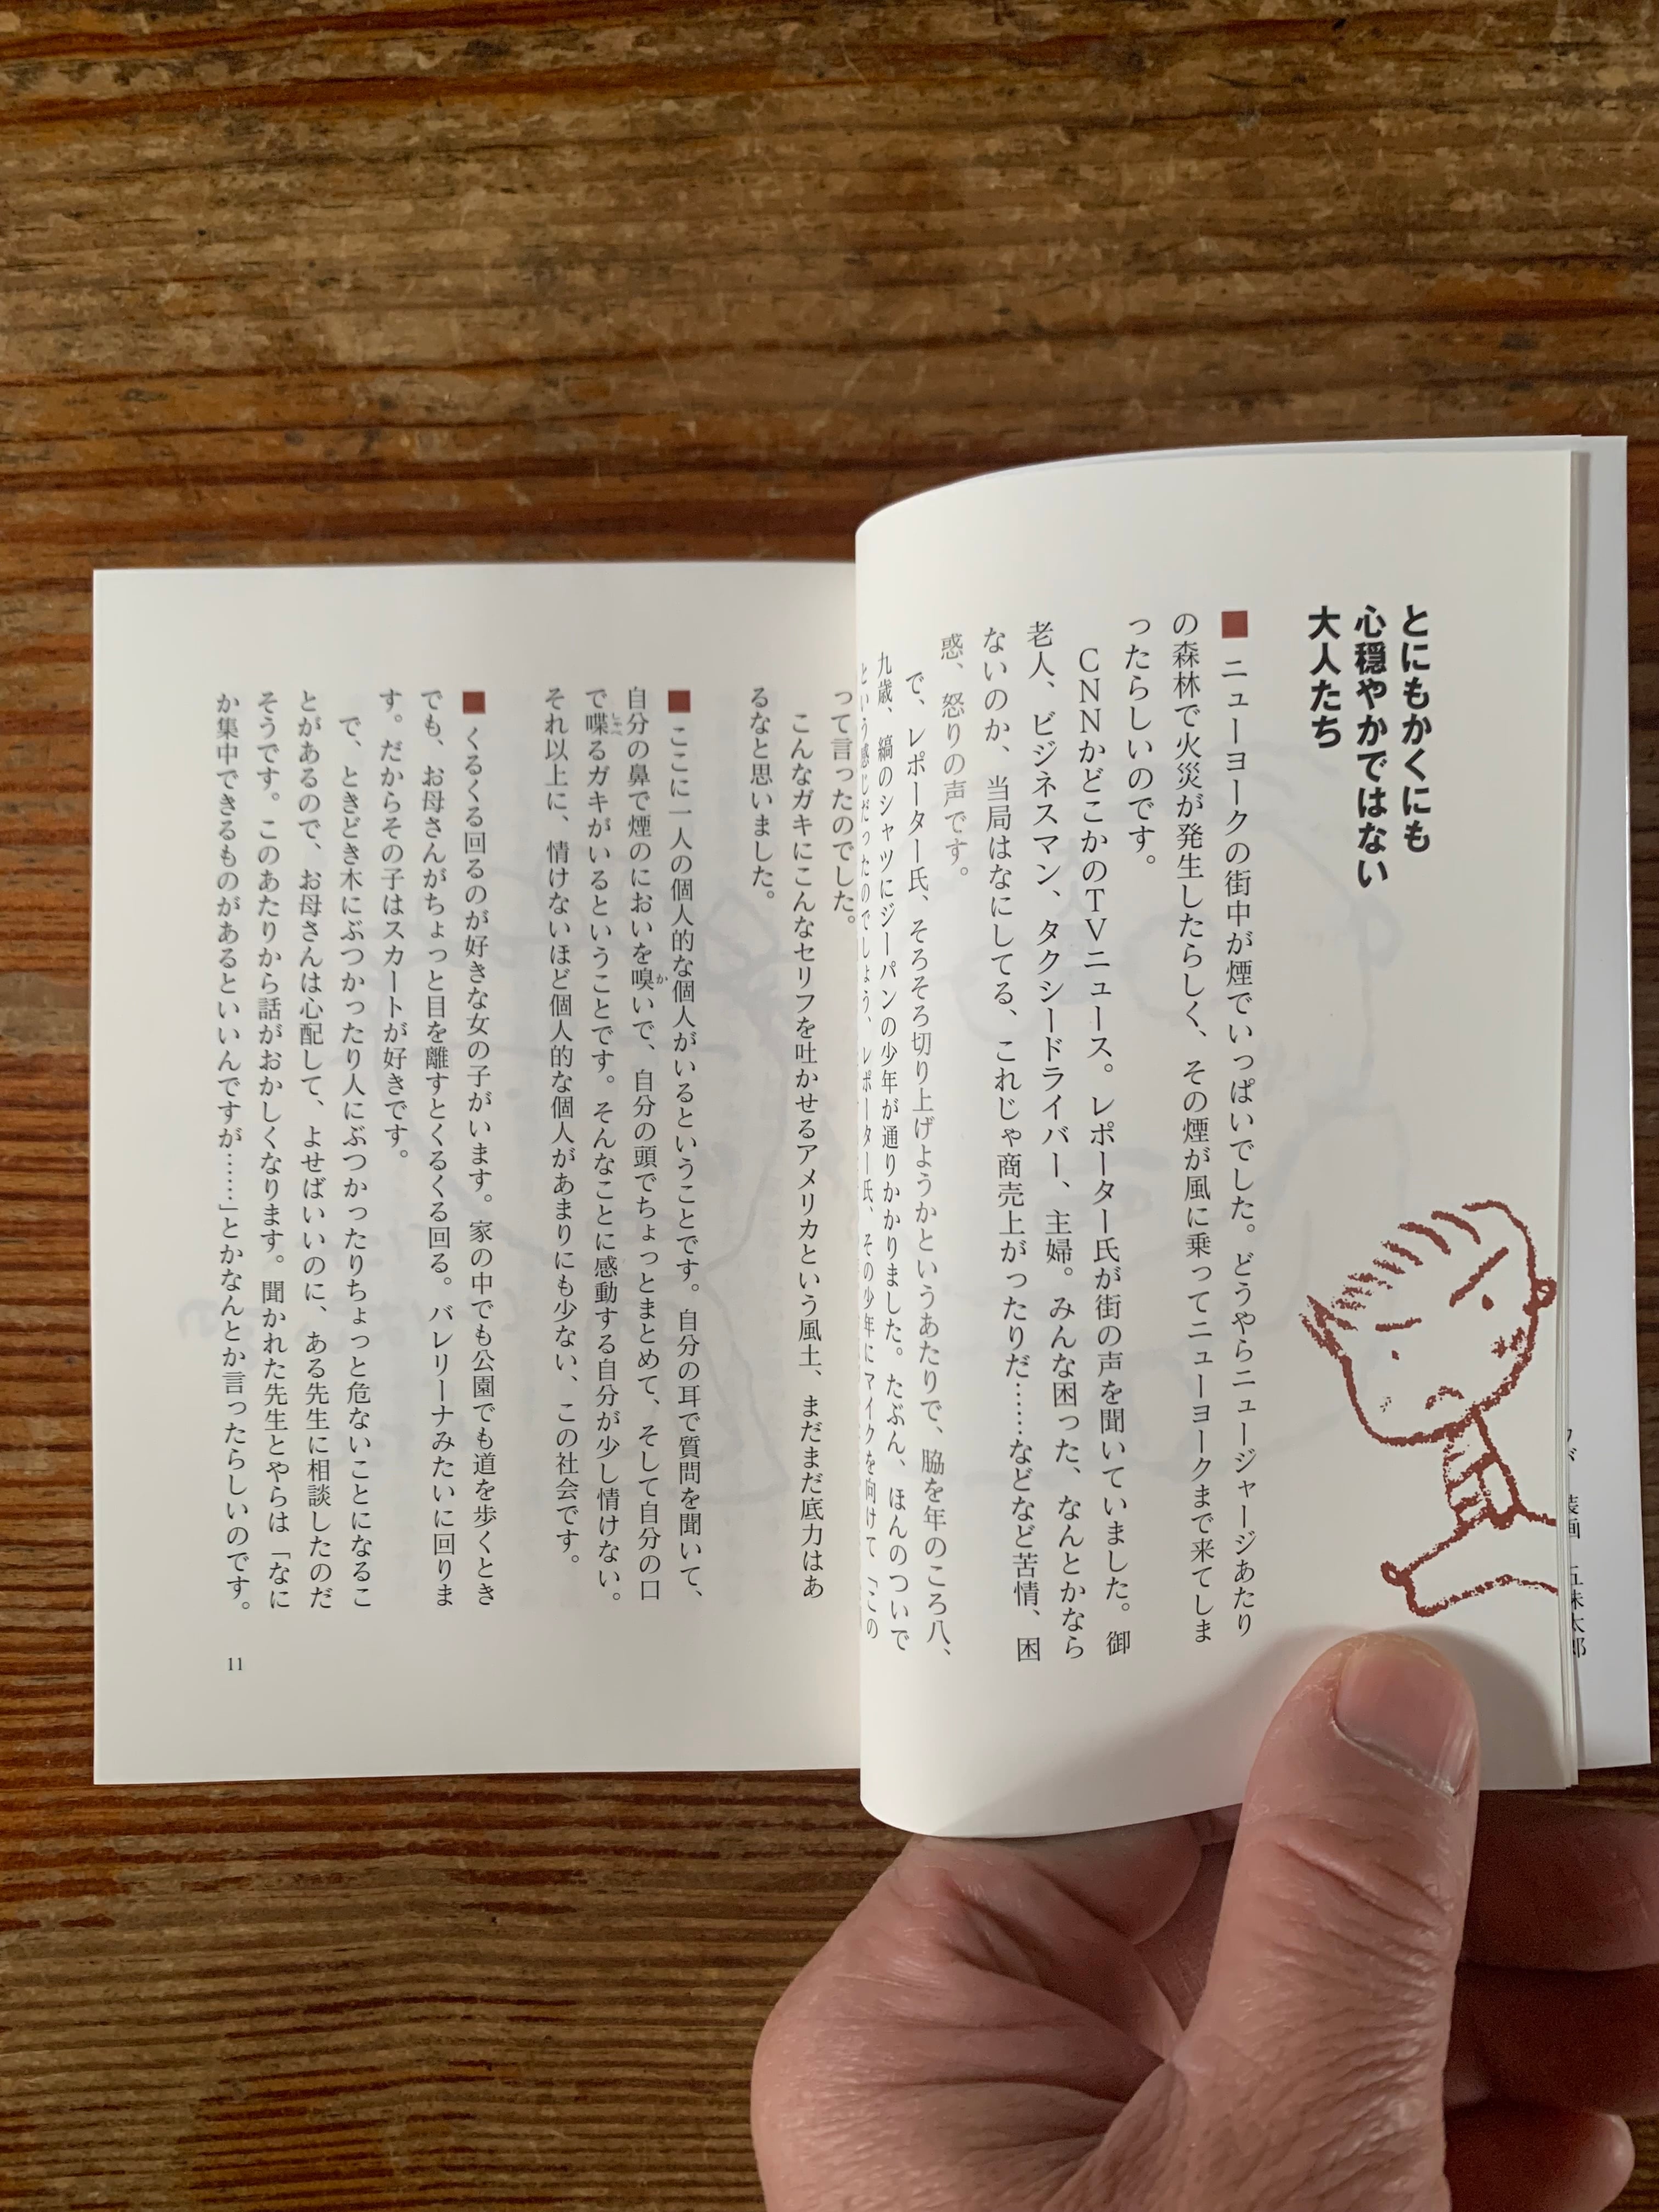 とにもかくにも
心穏やかではない
大人たち
■ニューヨークの街中が煙でいっぱいでした。どうやらニュージャージあたり
の森林で火災が発生したらしく、その煙が風に乗ってニューヨークまで来てしま
ったらしいのです。
CNNかどこかのTVニュース。レポーター氏が街の声を聞いていました。御
老人、ビジネスマン、タクシードライバー、主婦。みんな困った、なんとかなら
ないのか、当局はなにしてる、これじゃ商売上がったりだ……などなど苦情、困
惑、怒りの声です。
で、レポーター氏、そろそろ切り上げようかというあたりで、脇を年のころ八、
九歳、縞のシャツにジーパンの少年が通りかかりました。たぶん、ほんのついで
という感じだったのでしょう、レポーター氏、その少年にマイクを向けて「この
って言ったのでした。
こんなガキにこんなセリフを吐かせるアメリカという風土、まだまだ底力はあ
るなと思いました。
■ここに一人の個人的な個人がいるということです。自分の耳で質問を聞いて、
自分の鼻で煙のにおいを嗅いで、自分の頭でちょっとまとめて、そして自分の口
で喋るガキがいるということです。そんなことに感動する自分が少し情けない。
それ以上に、情けないほど個人的な個人があまりにも少ない、この社会です。
■くるくる回るのが好きな女の子がいます。家の中でも公園でも道を歩くとき
でも、お母さんがちょっと目を離すとくるくる回る。バレリーナみたいに回りま
す。だからその子はスカートが好きです。
で、ときどき木にぶつかったり人にぶつかったりちょっと危ないことになるこ
とがあるので、お母さんは心配して、よせばいいのに、ある先生に相談したのだ
そうです。このあたりから話がおかしくなります。聞かれた先生とやらは「なに
か集中できるものがあるといいんですが……」とかなんとか言ったらしいのです。
11